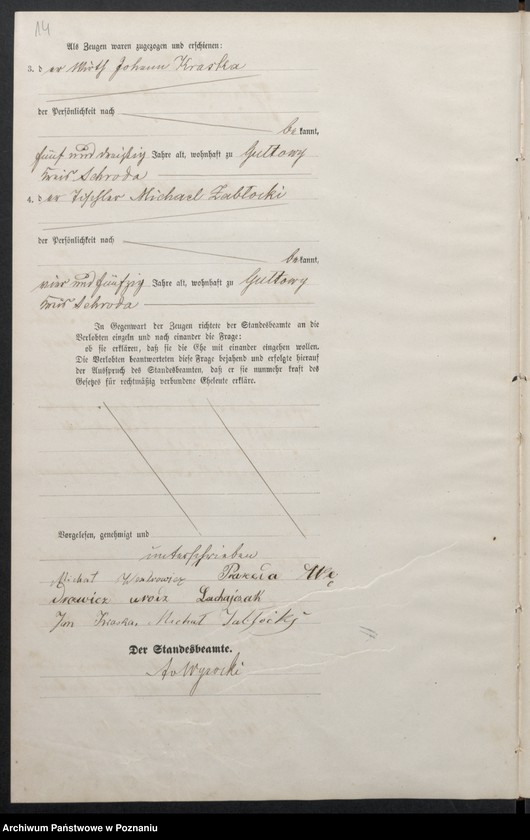 14
Als Zeugen waren zugezogen und erschienen:
3. der Wirth Johann Kraska
der Persönlichkeit nach
bekannt,
fünf und dreißig Jahre alt, wohnhaft zu Gultowy
Kreis Schroda
4. der Tischler Michael Zabłocki
der Persönlichkeit nach
bekannt,
vier und fünfzig Jahre alt, wohnhaft zu Gultowy
Kreis Schroda
In Gegenwart der Zeugen richtete der Standesbeamte an die
Verlobten einzeln und nach einander die Frage:
ob sie erklären, daß sie die Ehe mit einander eingehen wollen.
Die Verlobten beantworteten diese Frage bejahend und erfolgte hierauf
der Ausspruch des Standesbeamten, daß er sie nunmehr kraft des
Gesetzes für rechtmäßig verbundene Eheleute erkläre.
Vorgelesen, genehmigt und
unterschrieben
Michał Wę
drowicz urodz Lachajczak
Jan Kraska, Michał Zabłocki
Der Standesbeamte.
Wysocki
Archiwum Państwowe w Poznaniu